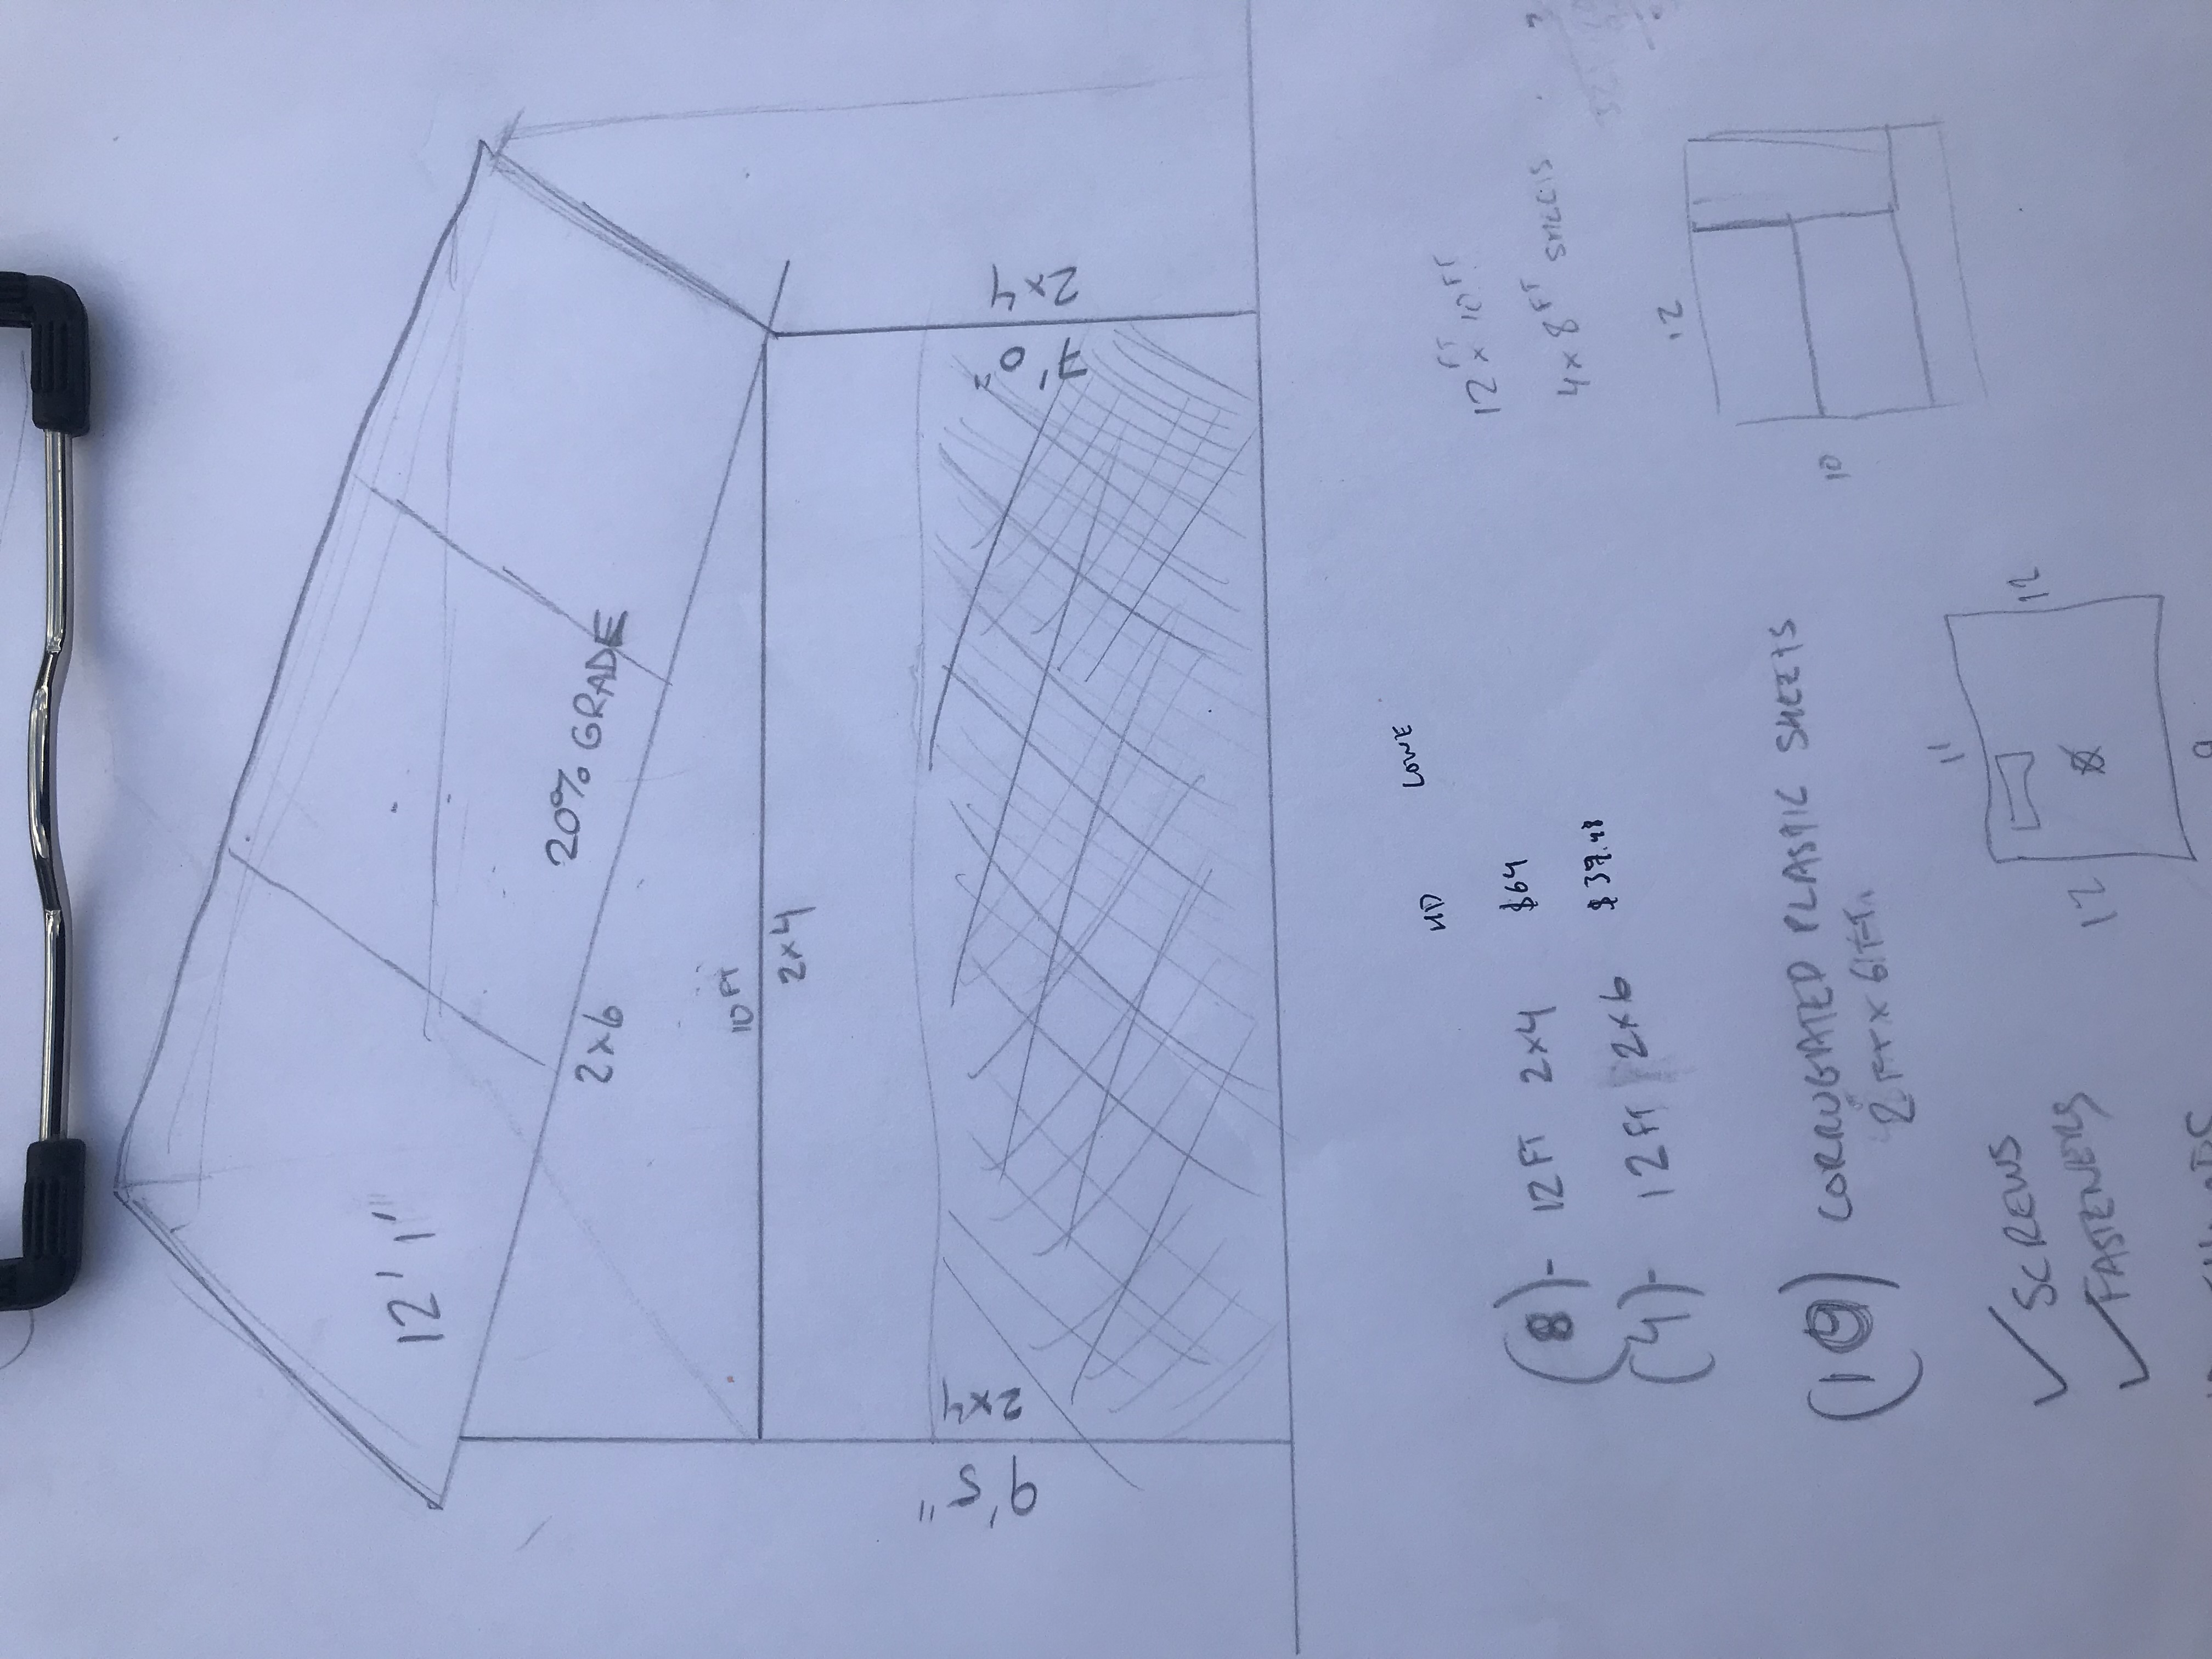 12' 1"
20% GRADE
2x6
10 FT
2x4
9'5"
2x4
7'0"
2x4
HD LOWE
(8)- 12FT 2x4 $64
(4)- 12FT 2x6
12FT x 10FT
4x8FT SHEETS
12
10
CORRUGATED PLASTIC SHEETS
2FT x 6FT.
✓ SCREWS
✓ FASTENERS
11
12
12
9